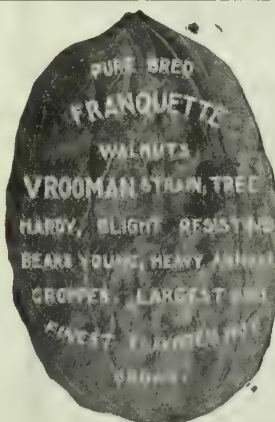 PURE BRED
FRANQUETTE
WALNUTS
VROOMAN STRAIN, TREE
HARDY, BLIGHT RESISTING
BEARS YOUNG, HEAVY ANNUAL
CROPPER, LARGEST AND
FINEST FLAVORED NUT
GROWN.